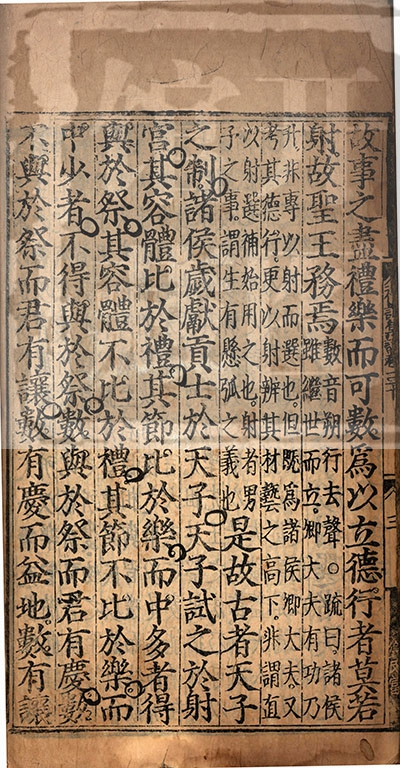 故事之盡禮樂而可數爲以立德行者莫若
射故聖王務焉
數音朔行去聲○疏曰諸侯
雖繼世而立卿大夫有功乃
升非專以射而選也但既爲諸侯卿大夫又
考其德行更以射辨其材藝之高下非謂直
以射選補始用之也射者男
子之事謂生有懸弧之義也
是故古者天子
之制諸侯歲獻貢士於天子天子試之於射
宮其容體比於禮其節比於樂而中多者得
與於祭其容體不比於禮其節不比於樂而
中少者不得與於祭數與於祭而君有慶數
不與於祭而君有讓數有慶而益地數有讓